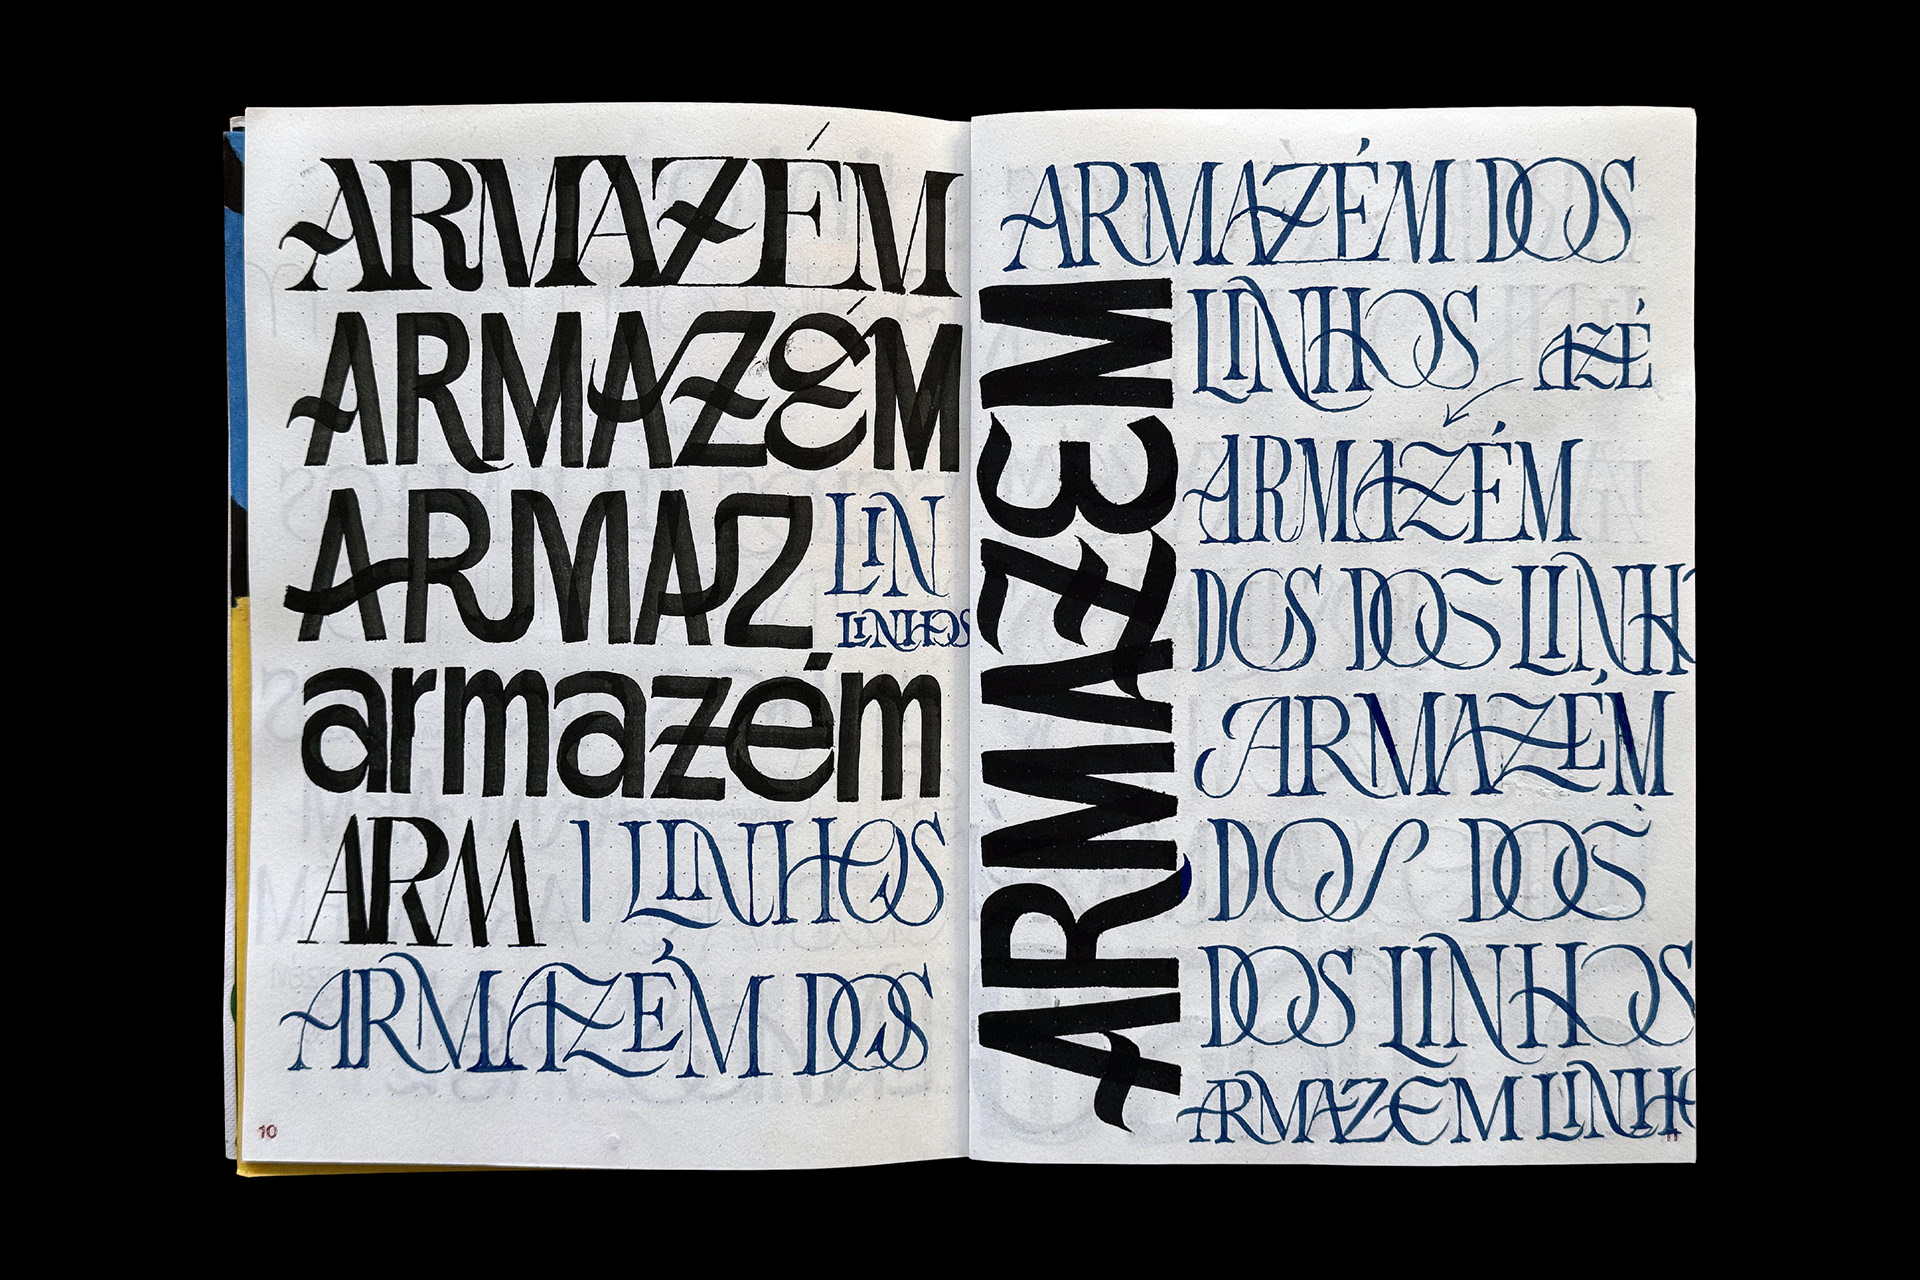 ARMAZÉM
ARMAZÉM
ARMAZ
LIN
LINHOS
armazém
ARM
LINHOS
ARMAZÉM DOS
10
ARMAZEM
ARMAZÉM DOS
LINHOS
AZÉ
ARMAZÉM
DOS DOS LINH
ARMAZÉM
DOS DOS
DOS LINHOS
ARMAZEM LINHO
11